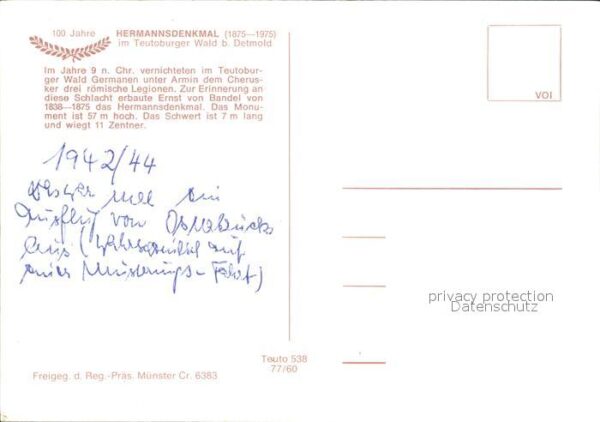 100 Jahre HERMANNSDENKMAL (1875—1975)
im Teutoburger Wald b. Detmold
Im Jahre 9 n. Chr. vernichteten im Teutobur-
ger Wald Germanen unter Armin dem Cherus-
ker drei römische Legionen. Zur Erinnerung an
diese Schlacht erbaute Ernst von Bandel von
1838—1875 das Hermannsdenkmal. Das Monu-
ment ist 57 m hoch. Das Schwert ist 7 m lang
und wiegt 11 Zentner.
1942/44
mal ein
Ausflug von Osnabrück
aus ( auf
einer Musterungs-Fahrt)
VOI
privacy protection
Datenschutz
Teuto 538
77/60
Freigeg. d. Reg.-Präs. Münster Cr. 6383